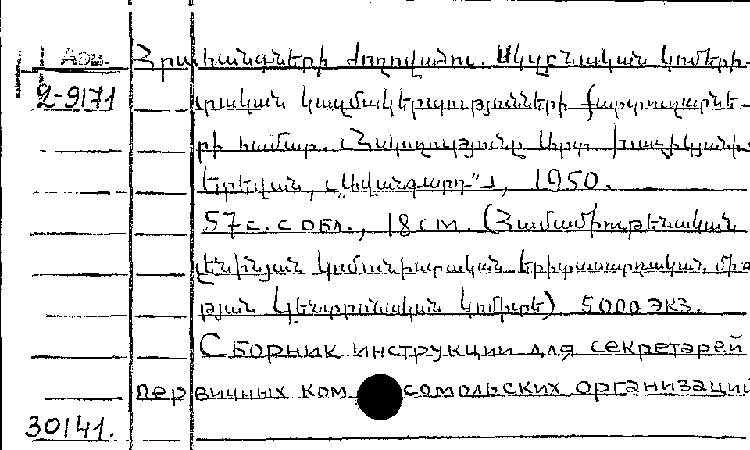 Арм. Հրահանգների ժողովածու. Սկզբնական կոմերի-
2-9171 տական կազմակերպությունների քարտուղարնե-
րի համար.
Երեվան, «Ավանգարդ», 1950.
57 с. с обл., 18 см. (Համամիութենական
լենինյան կոմունիստական երիտասարդական միու
թյան կենտրոնական կոմիտե) 5000 экз.
Сборник инструкции для секретарей
первичных комсомольских организаций
30141.